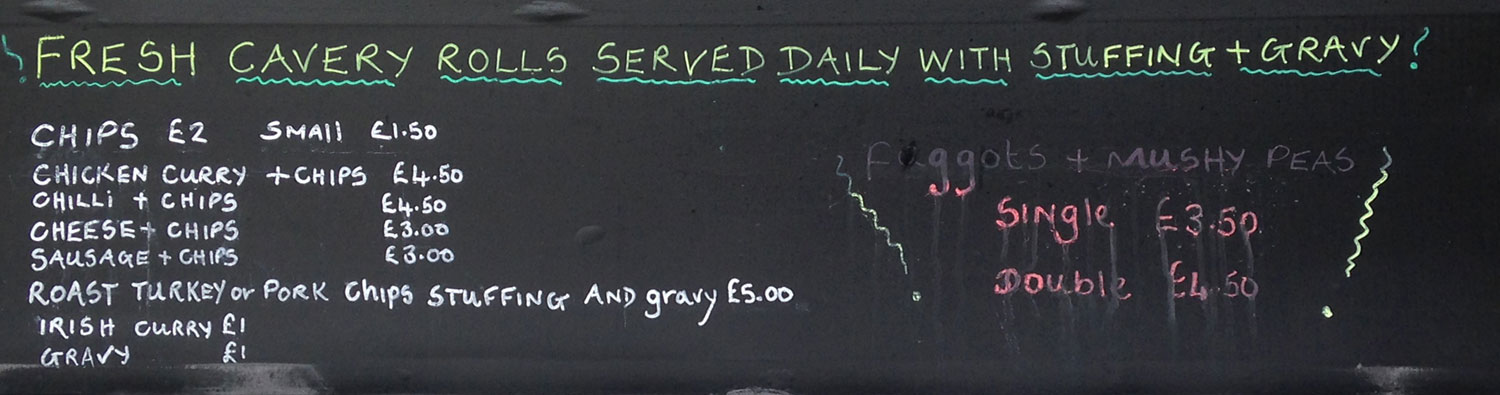 FRESH CAVERY ROLLS SERVED DAILY WITH STUFFING + GRAVY!
CHIPS £2 SMAll £1.50
CHICKEN CURRY + CHIPS £4.50
CHILLI + CHIPS £4.50
CHEESE + CHIPS £3.00
SAUSAGE + CHIPS £3.00
ROAST TURKEY or PORK Chips STUFFING AND gravy £5.00
IRISH CURRY £1
GRAVY £1
Faggots + MUSHY PEAS
Single £3.50
Double £4.50